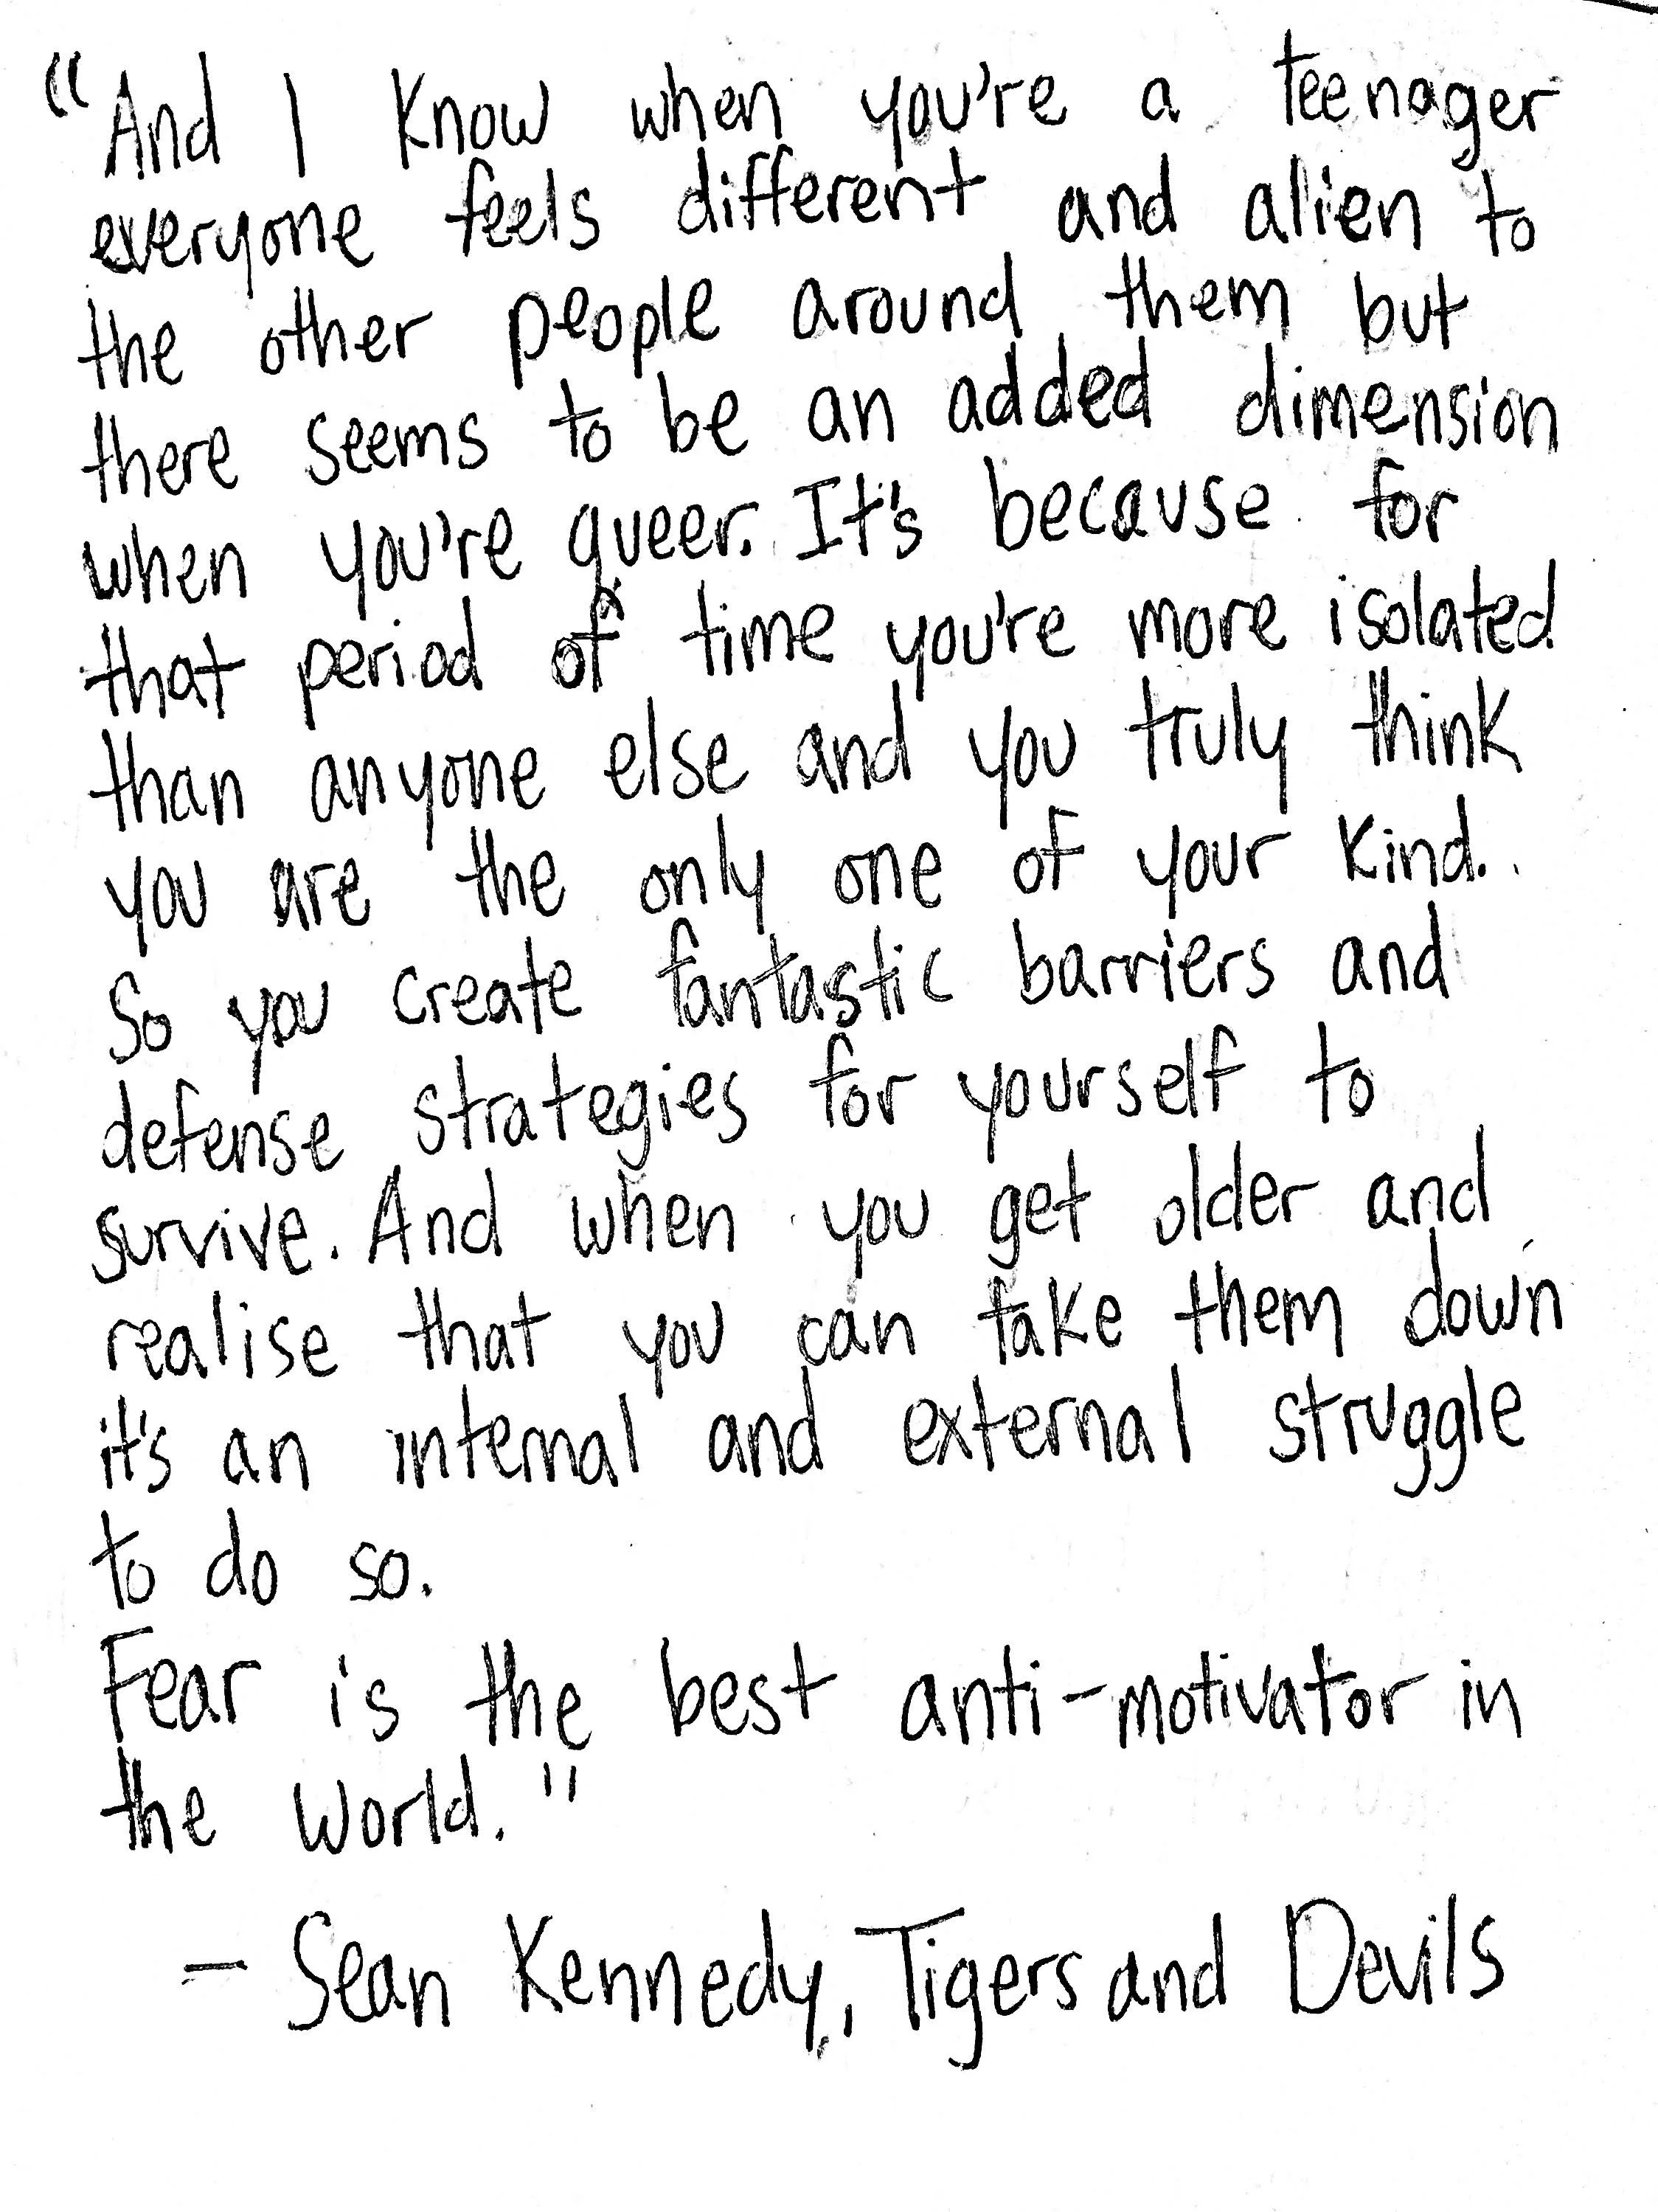 "And I Know when you're a teenager
everyone feels different and alien to
the other people around them but
there seems to be an added dimension
when you're queer. It's because for
that period of time you're more isolated
than anyone else and you truly think
you are the only one of your kind.
So you create fantastic barriers and
defense strategies for yourself to
survive. And when you get older and
realise that you can take them down
it's an internal and external struggle
to do so.
Fear is the best anti-motivator in
the World."
- Sean Kennedy, Tigers and Devils